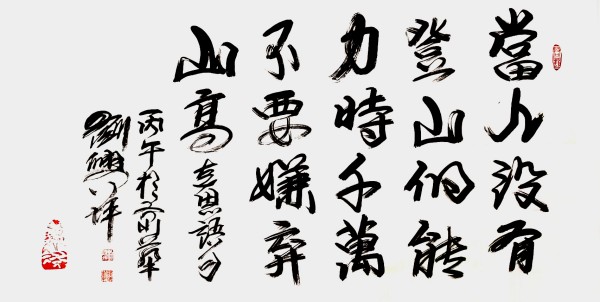 當人没有
登山的能
力時千萬
不要嫌弃
山高
思語句
丙午於
劉興